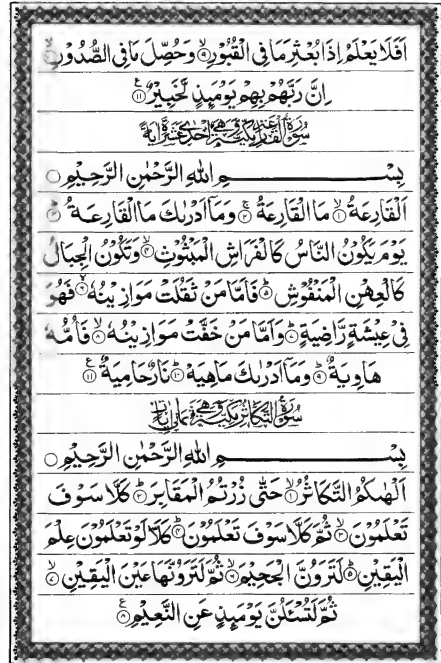 اَفَلَا يَعْلَمُ اِذَا بُعْثِرَ مَا فِي الْقُبُوْرِ ۙ﴿۹﴾ وَحُصِّلَ مَا فِي الصُّدُوْرِ ۙ﴿۱۰﴾
اِنَّ رَبَّهُمْ بِهِمْ يَوْمَىِٕذٍ لَّخَبِيْرٌ ﴿۱۱﴾ ع
سُوْرَةُ الْقَارِعَةِ مَكِّيَّةٌ وَّهِيَ اِحْدٰى عَشْرَةَ اٰيَةً
بِسْمِ اللهِ الرَّحْمٰنِ الرَّحِيْمِ ○
اَلْقَارِعَةُ ۙ﴿۱﴾ مَا الْقَارِعَةُ ۚ﴿۲﴾ وَمَاۤ اَدْرٰىكَ مَا الْقَارِعَةُ ؕ﴿۳﴾
يَوْمَ يَكُوْنُ النَّاسُ كَالْفَرَاشِ الْمَبْثُوْثِ ۙ﴿۴﴾ وَتَكُوْنُ الْجِبَالُ
كَالْعِهْنِ الْمَنْفُوْشِ ؕ﴿۵﴾ فَاَمَّا مَنْ ثَقُلَتْ مَوَازِيْنُهٗ ۙ﴿۶﴾ فَهُوَ
فِيْ عِيْشَةٍ رَّاضِيَةٍ ؕ﴿۷﴾ وَاَمَّا مَنْ خَفَّتْ مَوَازِيْنُهٗ ۙ﴿۸﴾ فَاُمُّهٗ
هَاوِيَةٌ ؕ﴿۹﴾ وَمَاۤ اَدْرٰىكَ مَاهِيَهْ ؕ﴿۱۰﴾ نَارٌ حَامِيَةٌ ﴿۱۱﴾ ع
سُوْرَةُ التَّكَاثُرِ مَكِّيَّةٌ وَّهِيَ ثَمَانِيْ اٰيَاتٍ
بِسْمِ اللهِ الرَّحْمٰنِ الرَّحِيْمِ ○
اَلْهٰىكُمُ التَّكَاثُرُ ۙ﴿۱﴾ حَتّٰى زُرْتُمُ الْمَقَابِرَ ؕ﴿۲﴾ كَلَّا سَوْفَ
تَعْلَمُوْنَ ۙ﴿۳﴾ ثُمَّ كَلَّا سَوْفَ تَعْلَمُوْنَ ؕ﴿۴﴾ كَلَّا لَوْ تَعْلَمُوْنَ عِلْمَ
الْيَقِيْنِ ؕ﴿۵﴾ لَتَرَوُنَّ الْجَحِيْمَ ۙ﴿۶﴾ ثُمَّ لَتَرَوُنَّهَا عَيْنَ الْيَقِيْنِ ۙ﴿۷﴾
ثُمَّ لَتُسْـَٔلُنَّ يَوْمَىِٕذٍ عَنِ النَّعِيْمِ ﴿۸﴾ ع